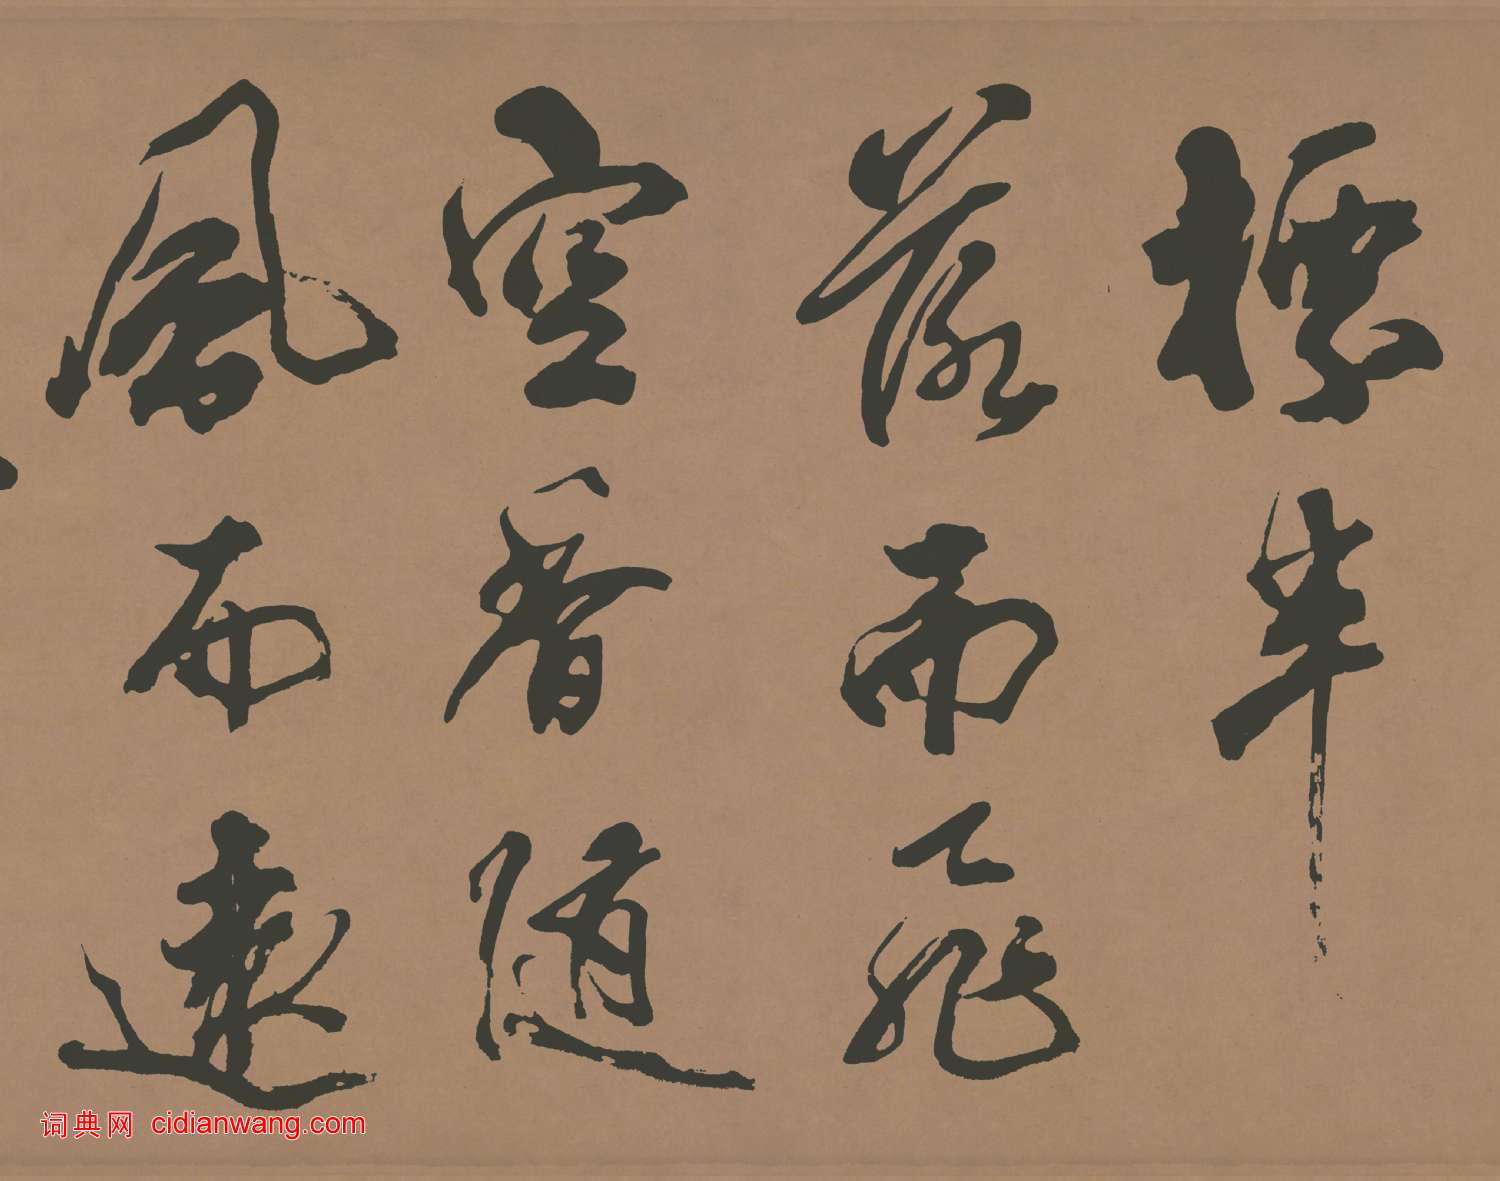 標半
落而飛
空香随
風而遠
词典网 cidianwang.com